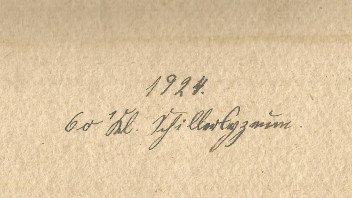 1924.
60 Kl. Schillerlyzeum